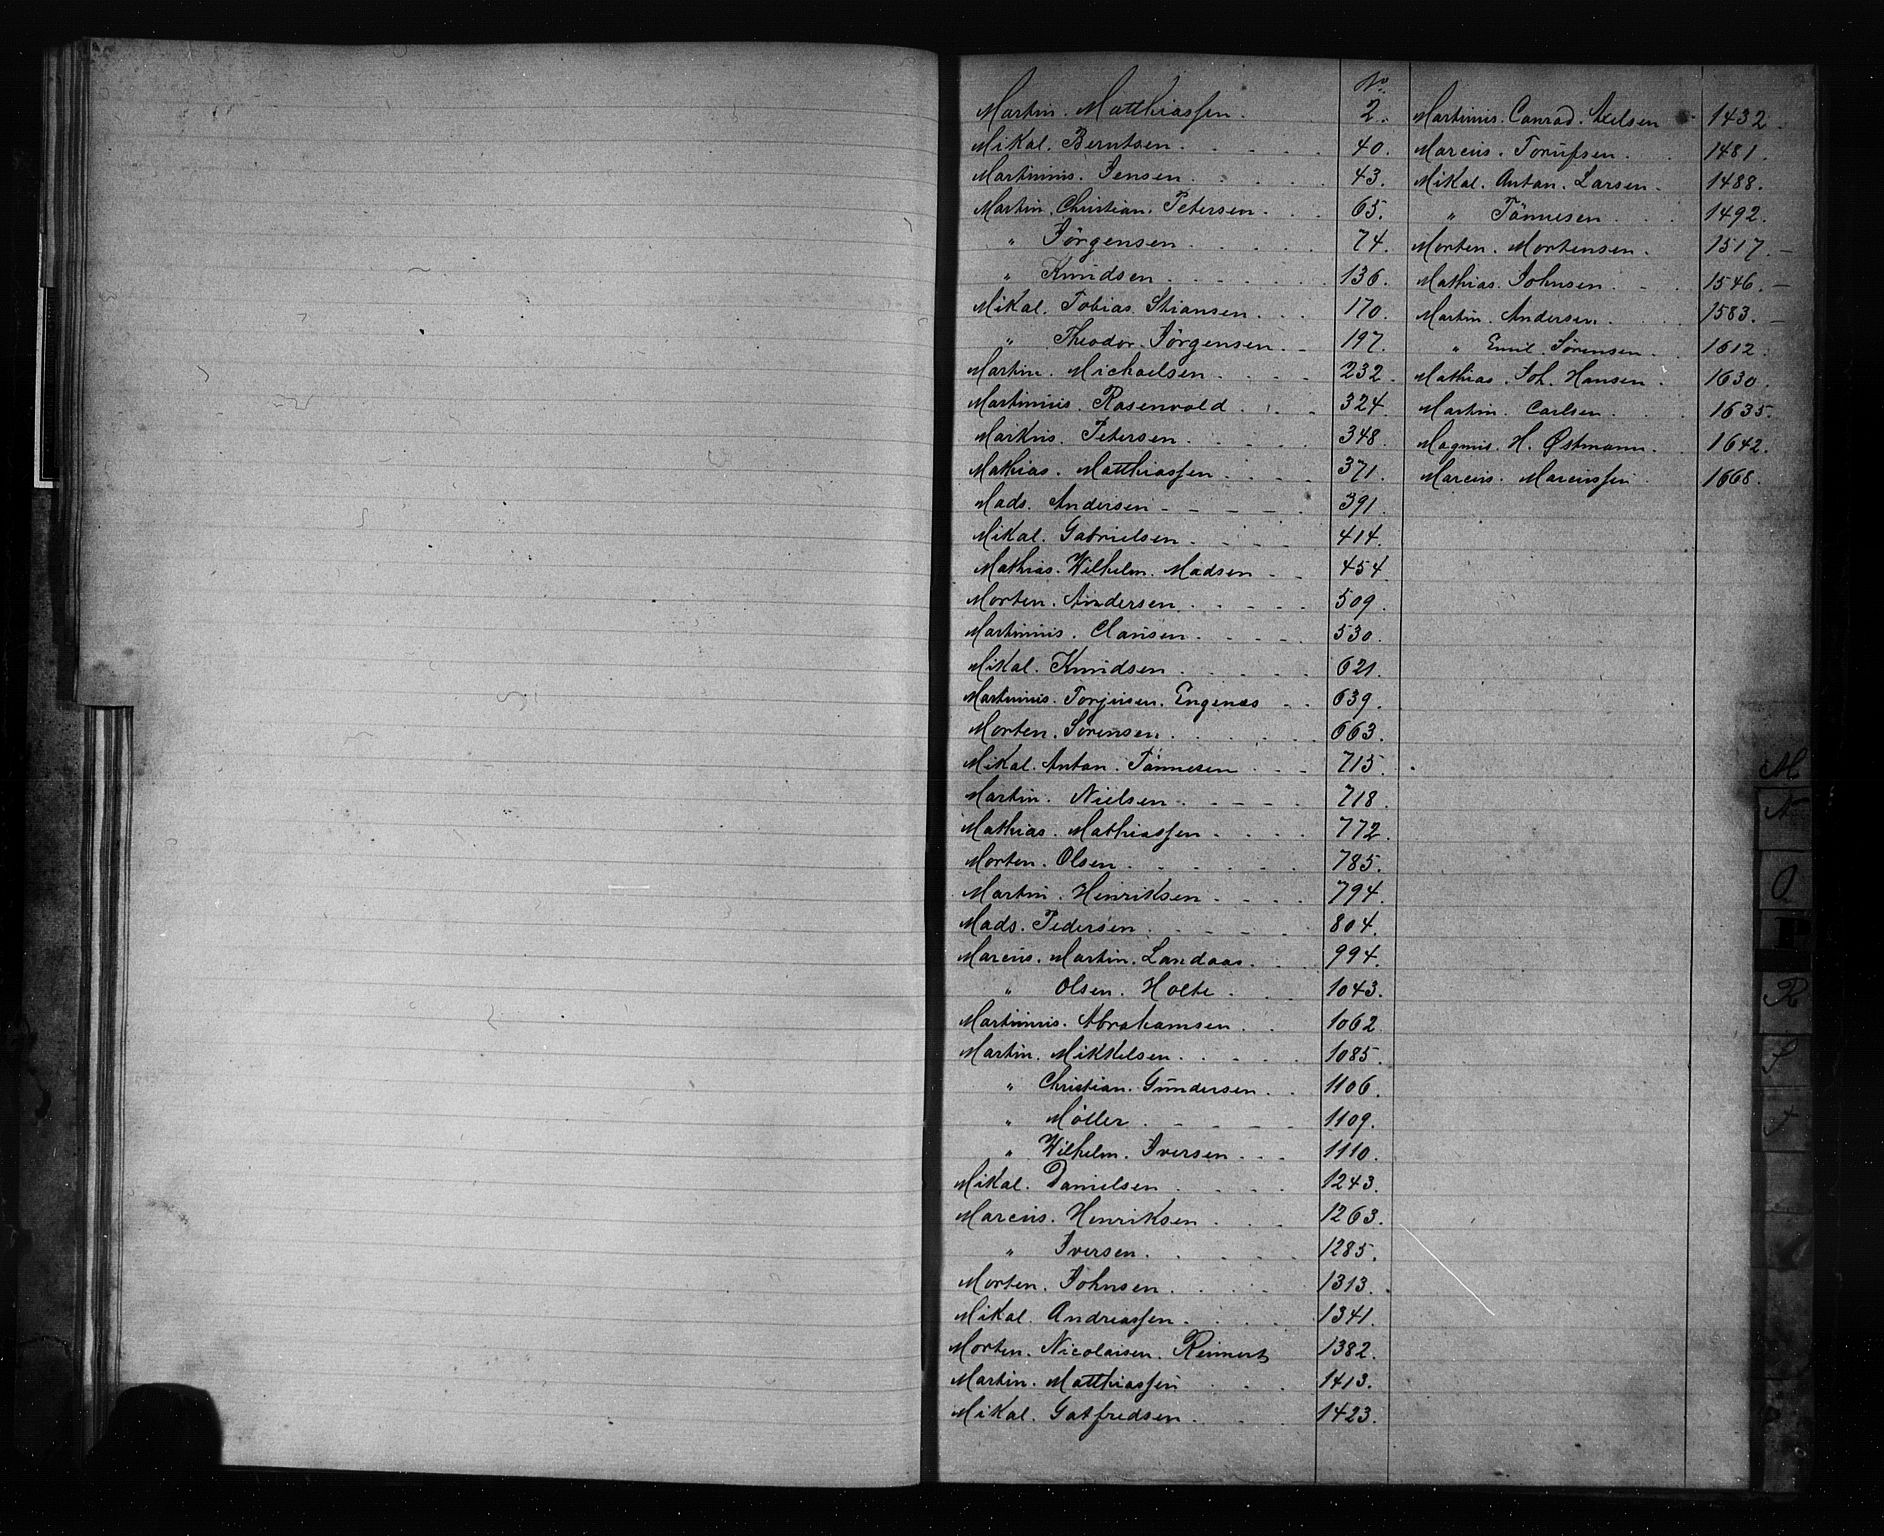 No
Martin. Matthiassen. 2.
Mikal. Berntsen. 40.
Martinius. Jensen. 43.
Martin. Christian. Petersen. 65.
" Jörgensen 74.
" Knudsen. 136.
Mikal. Tobias. Stiansen. 170.
" Theodor. Jörgensen. 197.
Martin. Michaelsen. 232.
Martinius. Rosenvold. 324.
Markus. Petersen. 348.
Mathias. Matthiassen. 371.
Mads. Andersen 391.
Mikal. Gabrielsen. 414.
Mathias. Wilhelm. Madsen 454.
Morten. Andersen. 509.
Martinius. Clausen. 530.
Mikal. Knudsen. 621.
Martinius. Torjusen. Engenæs 639.
Morten. Sørensen. 663.
Mikal. Anton. Tönnesen 715.
Martin. Nielsen. 718.
Mathias. Mathiassen. 772.
Morten. Olsen. 785.
Martin. Henriksen. 794.
Mads. Pedersen. 804.
Marcus. Martin. Landaas. 994.
" Olsen. Holte. 1043.
Martinius. Abrahamsen. 1062
Martin. Mikkelsen. 1085.
" Christian. Gundersen. 1106.
" Møller. 1109.
" Wilhelm. Iversen. 1110.
Mikal. Danielsen. 1243.
Marcus. Henriksen. 1263.
" Iversen. 1285.
Morten. Johnsen. 1313.
Mikal. Andreassen. 1341.
Morten. Nicolaisen. Reinert 1382.
Martin. Matthiassen 1413.
Mikal. Gotfredsen. 1423.
Martinius. Conrad. Axelsen 1432.
Marcus. 1481.
Mikal. Anton. Larsen. 1488.
" Tönnesen. 1492.
Morten. Mortensen. 1517.
Mathias. Johnsen. 1546.
Martin. Andersen. 1583.
" Emil. Sørensen. 1612.
Mathias. Joh. Hansen. 1630.
Martin. Carlsen. 1635.
Magnus. H. Østmann. 1642.
Marcus. Marcussen. 1668.
M
N
O
P
R
S
T